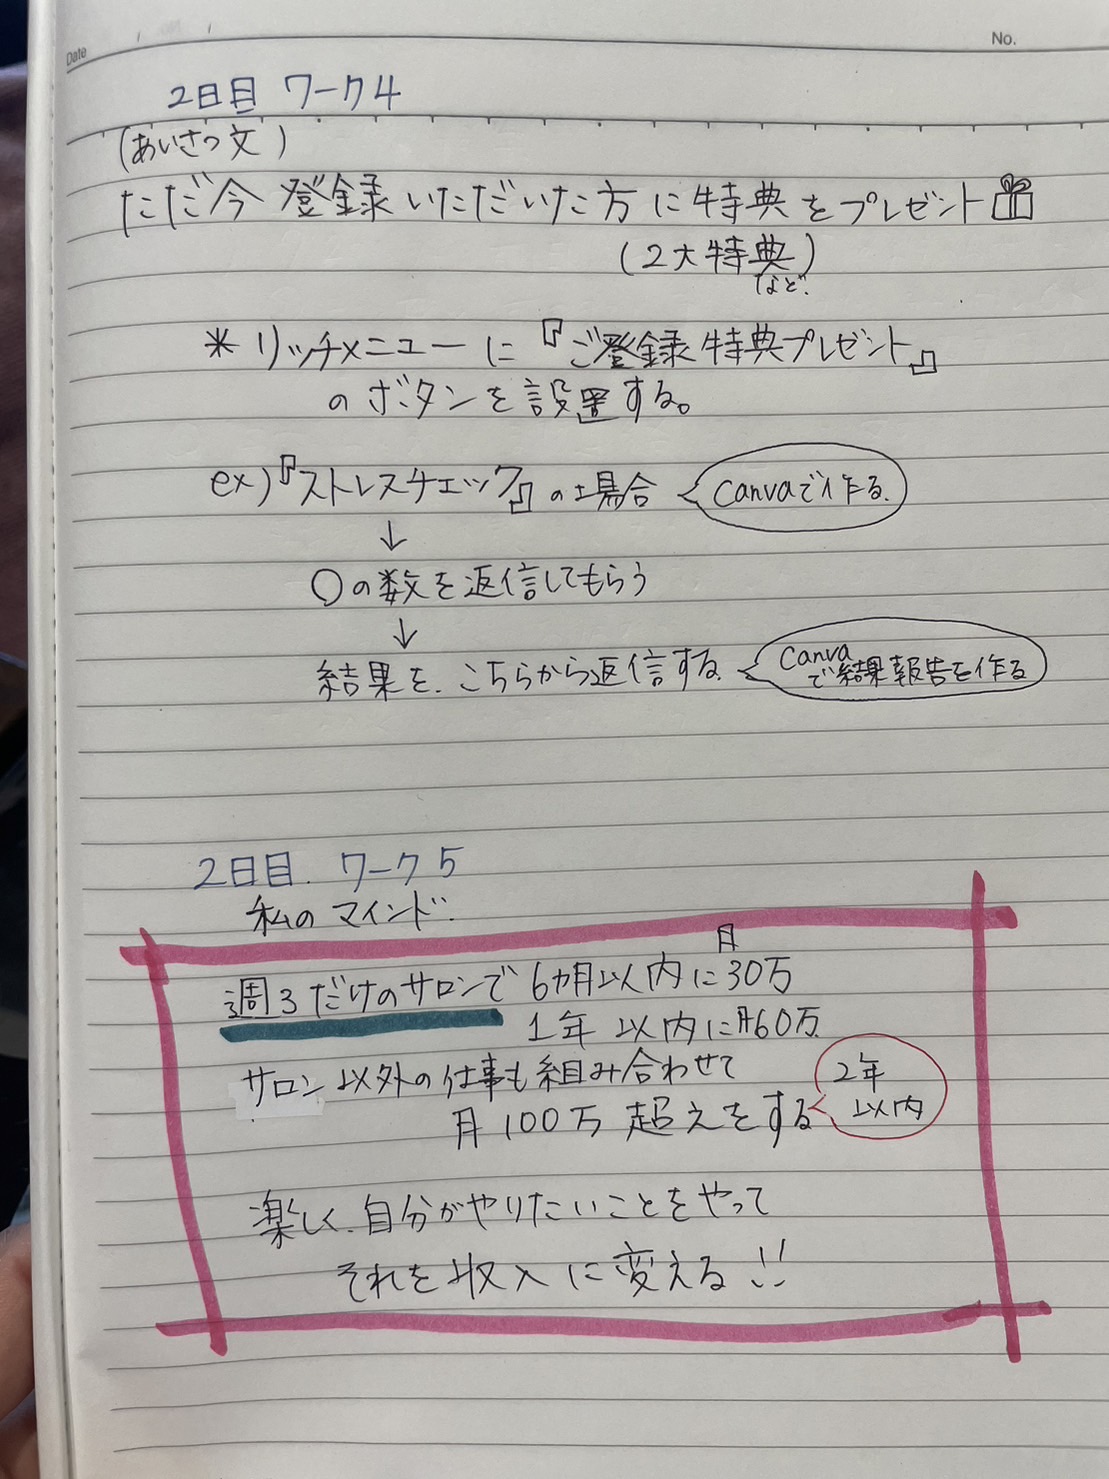 Date
No.
2日目 ワーク4
(あいさつ文)
ただ今 登録いただいた方に特典をプレゼント
(2大特典)
など.
* リッチメニューに『ご登録特典プレゼント』
のボタンを設置する。
ex)『ストレスチェック』の場合
Canvaで作る.
↓
○の数を返信してもらう
↓
結果を、こちらから返信する
Canva
で結果報告を作る
2日目. ワーク5
私のマインド.
週3だけのサロンで 6ヵ月以内に月30万
1年以内に月60万
サロン以外の仕事も組み合わせて
月100万超えをする
2年
以内
楽しく、自分がやりたいことをやって
それを収入に変える!!